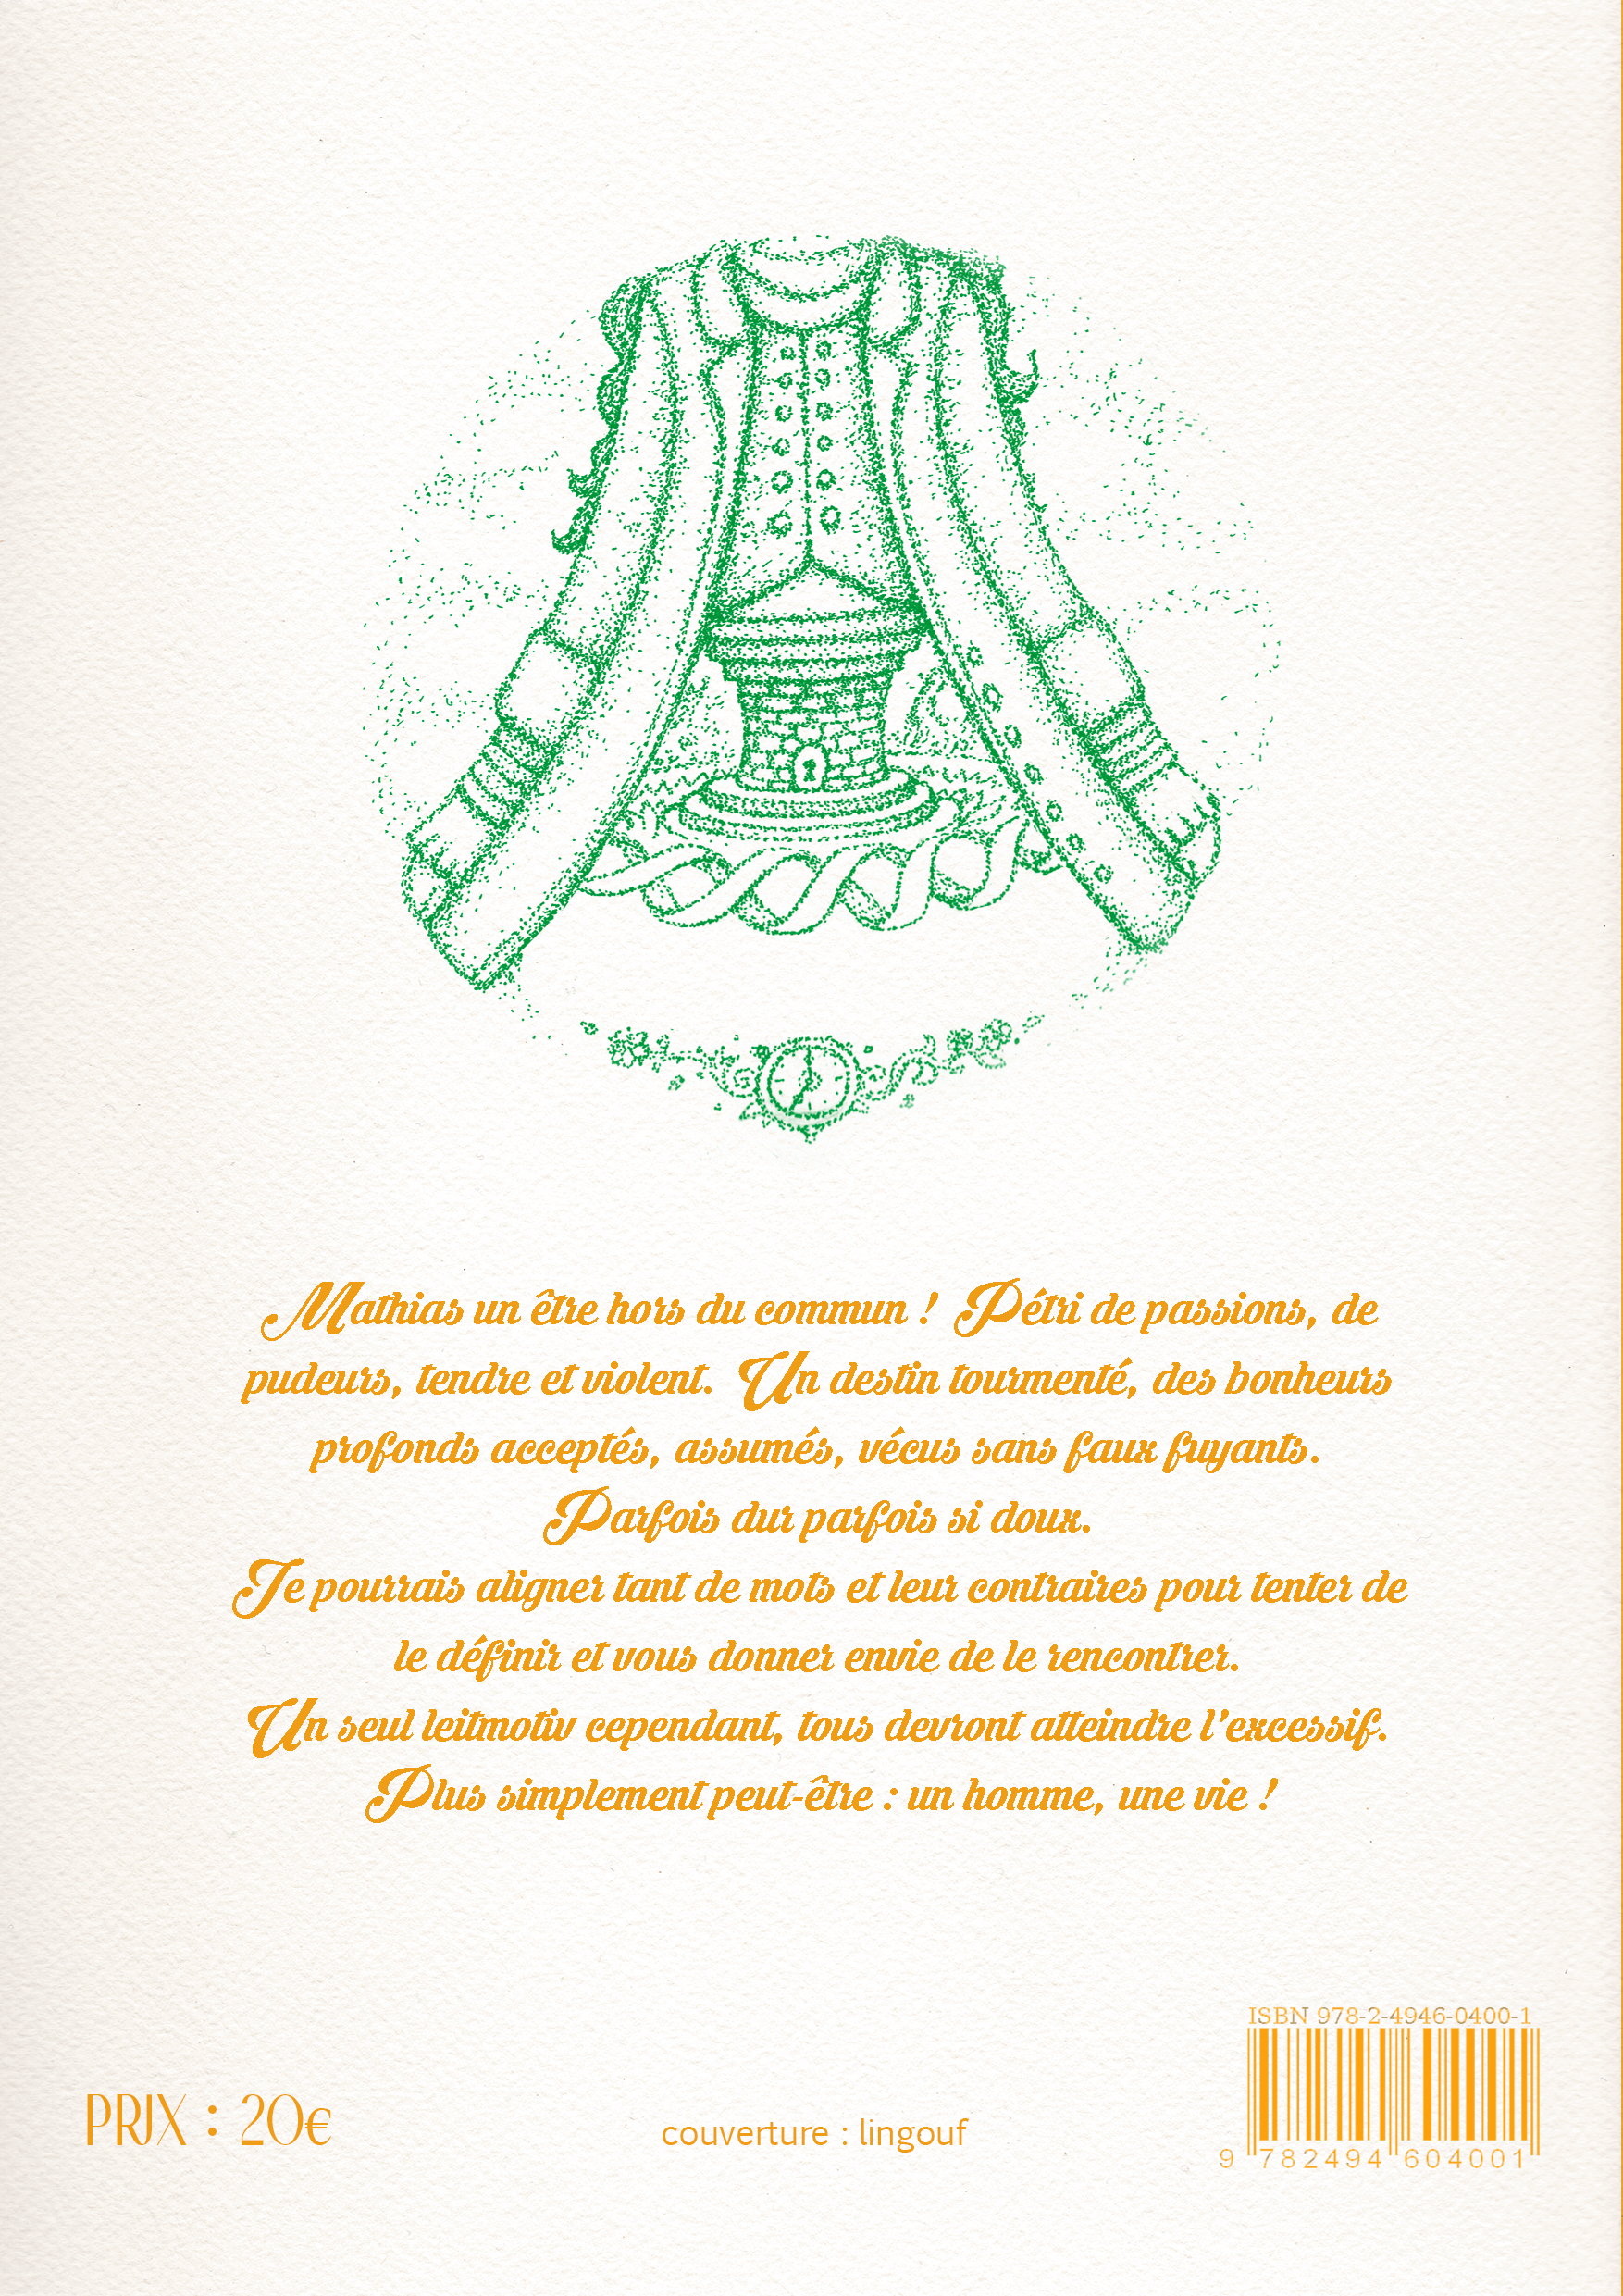 Mathias un être hors du commun ! Pétri de passions, de
pudeurs, tendre et violent. Un destin tourmenté, des bonheurs
profonds acceptés, assumés, vécus sans faux fuyants.
Parfois dur parfois si doux.
Je pourrais aligner tant de mots et leur contraires pour tenter de
le définir et vous donner envie de le rencontrer.
Un seul leitmotiv cependant, tous devront atteindre l'excessif.
Plus simplement peut-être : un homme, une vie !
ISBN 978-2-4946-0400-1
PRIX : 20€
couverture : lingouf
9 782494 604001